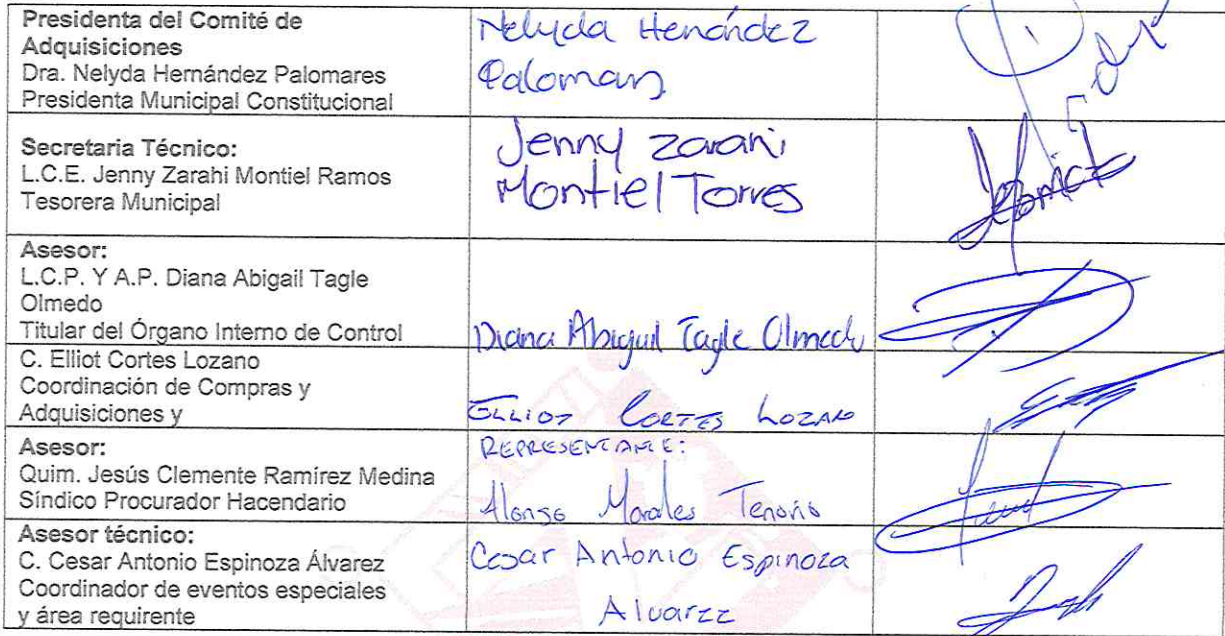 Presidenta del Comité de
Adquisiciones
Dra. Nelyda Hernández Palomares
Presidenta Municipal Constitucional
Nelyda Henández
Palomares
Secretaria Técnico:
L.C.E. Jenny Zarahi Montiel Ramos
Tesorera Municipal
Jenny Zarahi
Montiel Torres
Asesor:
L.C.P. Y A.P. Diana Abigail Tagle
Olmedo
Titular del Órgano Interno de Control
Diana Abigail Tagle Olmedo
C. Elliot Cortes Lozano
Coordinación de Compras y
Adquisiciones y
ELLIOT CORTES LOZANO
Asesor:
Quim. Jesús Clemente Ramírez Medina
Síndico Procurador Hacendario
REPRESENTANTE:
Alonso Morales Tenorio
Asesor técnico:
C. Cesar Antonio Espinoza Álvarez
Coordinador de eventos especiales
y área requirente
Cesar Antonio Espinoza
Alvarez